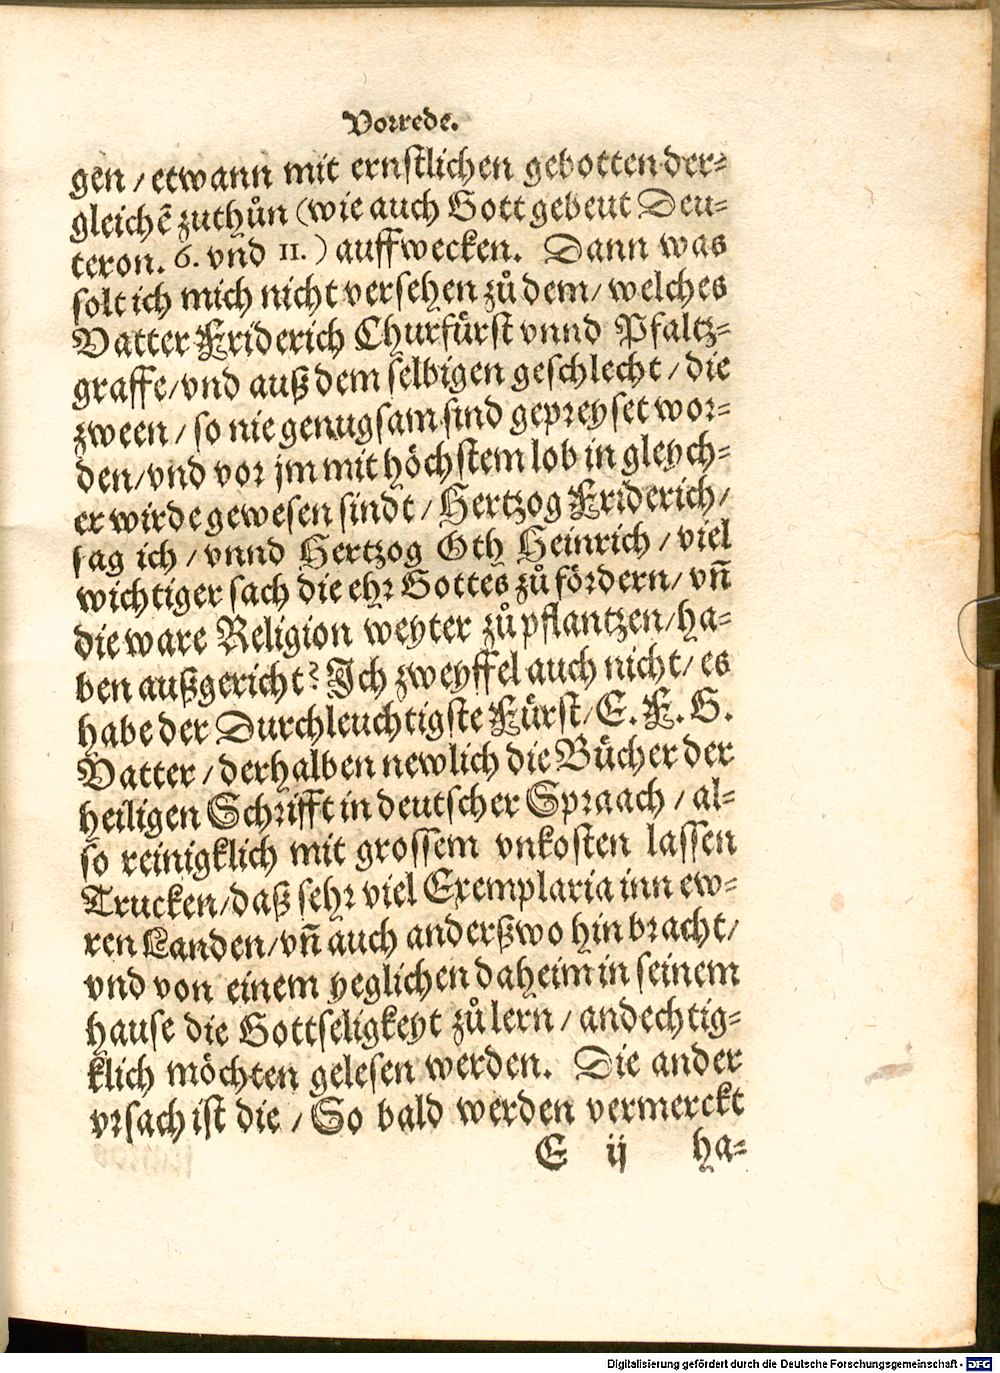 Vorrede.
gen / etwann mit ernstlichen gebotten der-
gleichẽ zuthůn (wie auch Gott gebeut Deu-
teron. 6. vnd 11.) auffwecken. Dann was
solt ich mich nicht versehen zů dem / welches
Vatter Friderich Churfürst vnnd Pfaltz-
graffe / vnd auß dem selbigen geschlecht / die
zween / so nie genugsam sind gepreyset wor-
den / vnd vor jm mit höchstem lob in gleych-
er wirde gewesen sindt / Hertzog Friderich /
sag ich / vnnd Hertzog Oth Heinrich / viel
wichtiger sach die ehr Gottes zů fördern / vñ
die ware Religion weyter zů pflantzen / ha-
ben außgericht? Ich zweyffel auch nicht / es
habe der Durchleuchtigste Fürst / E. F. G.
Vatter / derhalben newlich die Bücher der
heiligen Schrifft in deutscher Spraach / al-
so reinigklich mit grossem vnkosten lassen
Trucken / daß sehr viel Exemplaria inn ew-
ren Landen / vñ auch anderßwo hin bracht /
vnd von einem yeglichen daheim in seinem
hause die Gottseligkeyt zů lern / andechtig-
klich möchten gelesen werden. Die ander
vrsach ist die / So bald werden vermerckt
E ij ha-
Digitalisierung gefördert durch die Deutsche Forschungsgemeinschaft - DFG